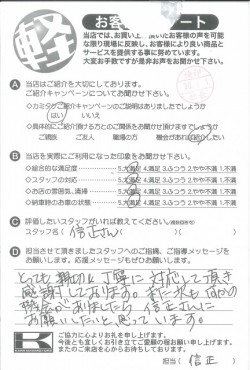 お客様アンケート
軽
当店では、お買い上げ頂いたお客様の声を可能
な限り現場に反映し、お客様により良い商品と
サービスを提供する事に努めています。
大変お手数ですが是非お声をお聞かせ下さい。
A 当店はご紹介を大切にしております。
ご紹介キャンペーンについてお聞かせ下さい。
はい いいえ
ご親族 ご友人 職場の方
B 当店を実際にご利用になった印象をお聞かせ下さい。
◇総合的な満足度 5.大満足 4.満足 3.ふつう 2.やや不満 1.不満
◇スタッフの対応 5.大満足 4.満足 3.ふつう 2.やや不満 1.不満
◇お店の雰囲気、清掃 5.大満足 4.満足 3.ふつう 2.やや不満 1.不満
◇納車時のお車の状態 5.大満足 4.満足 3.ふつう 2.やや不満 1.不満
C 評価したいスタッフがいれば教えてください。(複数回答可)
スタッフ名( 信正さん )
D 担当させて頂きましたスタッフへのご指摘、ご指導メッセージを
お願いします。応援メッセージもぜひお願いします。
とっても親切、丁寧に対応して頂き
感謝しております。また次も何かの
機会がありましたら信正さんに
お願いしたいと思っています。
K
ご協力に心よりお礼を申し上げます。
今後とも宜しくお引き立てご愛顧の程お願い申し上げます。
またのご来店を心からお待ちしております。
担当( 信正 )